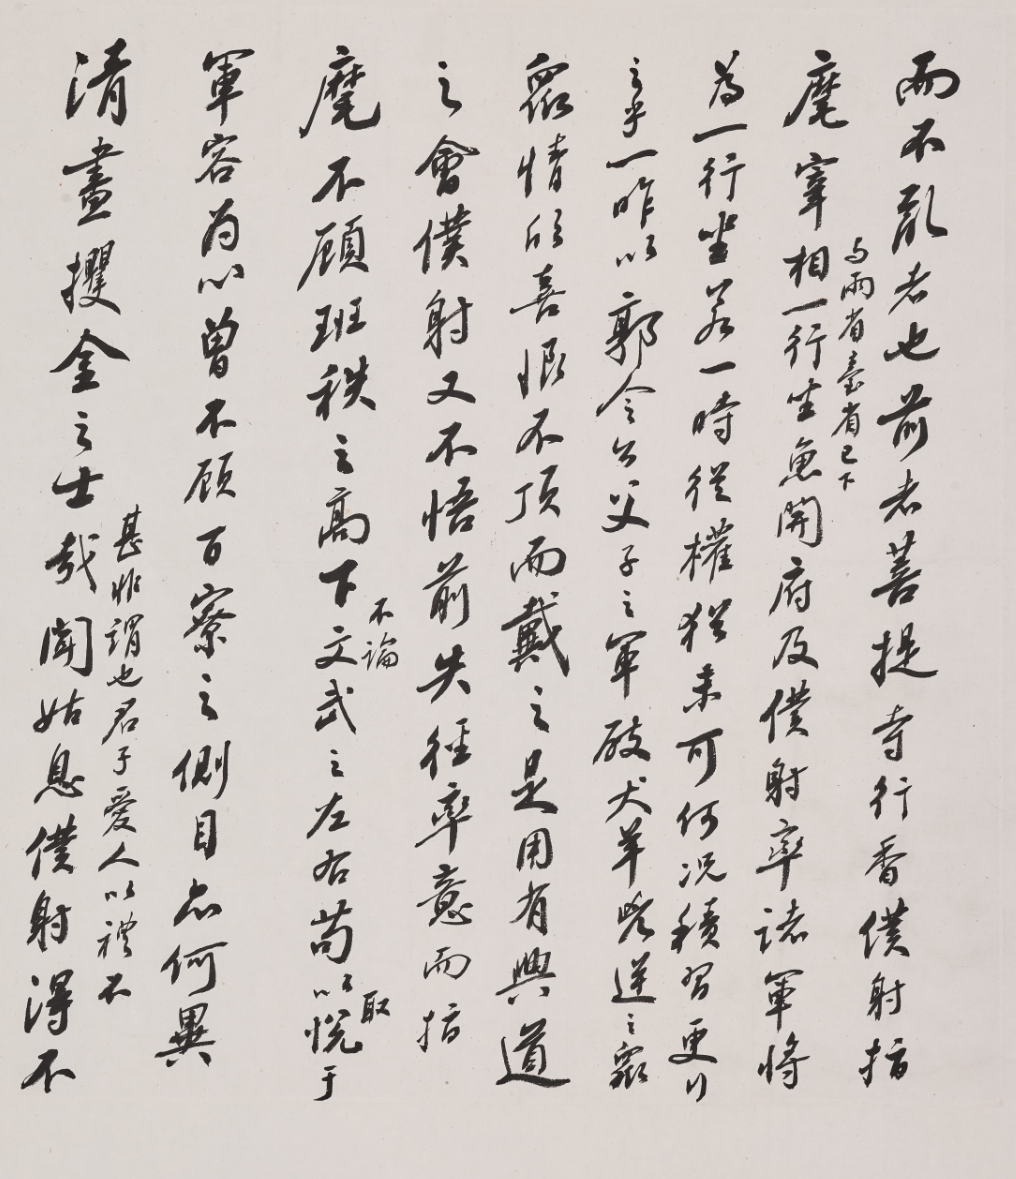 而不亂者也前者菩提寺行香僕射指
与兩省臺省已下
麾宰相一行坐魚開府及僕射率諸軍將
為一行坐若一時從權猶未可何況積習更行
之乎一昨以郭令公父子之軍破犬羊兇逆之眾
眾情欣喜恨不頂而戴之是用有興道
之會僕射又不悟前失徑率意而指
不論
取
麾不顧班秩之高下文武之左右苟以悅于
軍容為心曾不顧百寮之側目亦何異
甚非謂也君子愛人以禮不
清晝攫金之士哉聞姑息僕射得不